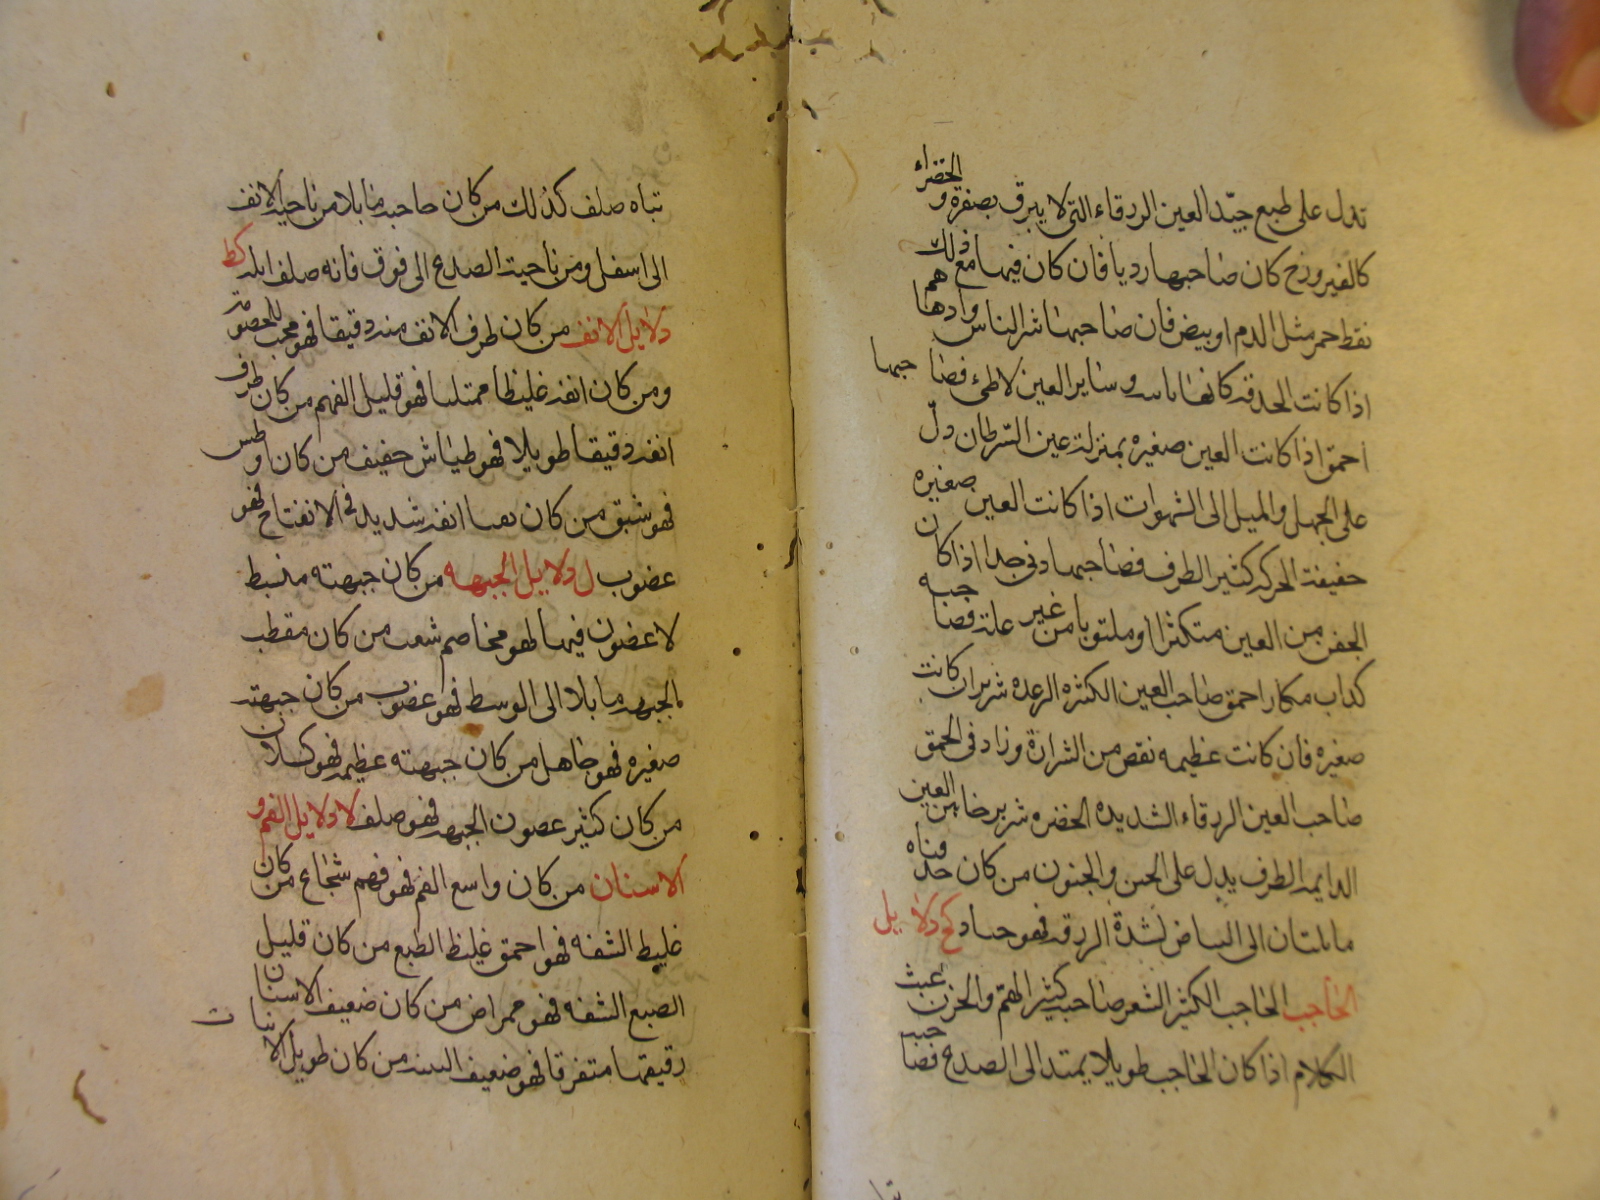 تدل على طبع جيّد العين الزرقاء التى لا يبرق بصفرة و الخضراء
كالفيروزج كان صاحبها رديا فان كان فيها مع ذلك
نقط حمر مثل الدم او بيض فان صاحبها شر الناس وادهاهم
اذا كانت الحدقه كانها وساير العين لاطى فصاحبها
احمق اذا كانت العين صغيره بمنزلة عين السّرطان دلّ
على الجهل والميل الى الشهوات اذا كانت العين صغيره
خفيفة الحركه كثير الطرف فصاحبها دنى جدا اذا كان
الجفن من العين متكثرا او ملتويا من غير علة فصاحبه
كذاب مكار احمق صاحب العين الكثره الرعده شرير ان كانت
صغيره فان كانت عظيمه نقص من الشرارة وزاد فى الحمق
صاحب العين الزرقاء الشديده الخضره شرير خاين العين
الدايمه الطرف يدل على الجبن والجنون من كان حدقتاه
مايلتان الى البياض لشدة الزرقه فهو جبان كح دلايل
الحاجب الحاجب الكثير الشعر صاحبه كثير الهم والحزن غث
الكلام اذا كان الحاجب طويلا يمتد الى الصدغ فصاحبه
تياه صلف كذلك من كان حاجبه مايلا من ناحية الانف
الى اسفل ومن ناحية الصدغ الى فوق فانه صلف ابله كط
دلايل الانف من كان طرف الانف منه دقيقا فهو محب للخصومة
ومن كان انفه غليظا ممتليا فهو قليل الفهم من كان طرف
انفه دقيقا طويلا فهو طياش خفيف من كان افطس
فهو شبق من كان انفه شديد فى الانفتاح فهو
غضوب ل دلايل الجبهه من كان جبهته منبسط
لا غضون فيها فهو مخاصم شغب من كان مقطب
الجبهه مايلا الى الوسط فهو غضوب من كان جبهته
صغيره فهو جاهل من كان جبهته عظيمه فهو كسلان
من كان كثير غصون الجبهه فهو صلف لا دلايل الفم و
الاسنان من كان واسع الفم فهو فهم شجاع من كان
غليظ الشفه فهو احمق غليظ الطبع من كان قليل
الصبع الشفه فهو ممراض من كان ضعيف الاسنان
رقيقها متفرقا فهو ضعيف البنيه من كان طويل الانياب